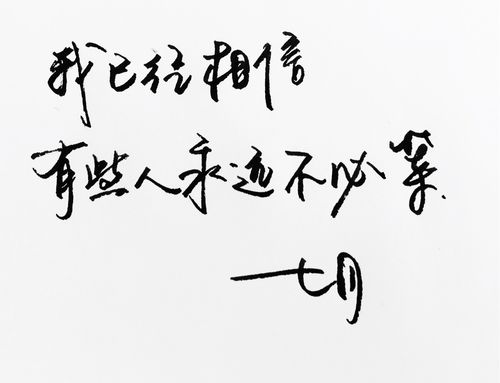 我已经相信
有些人永远不必等.
七月